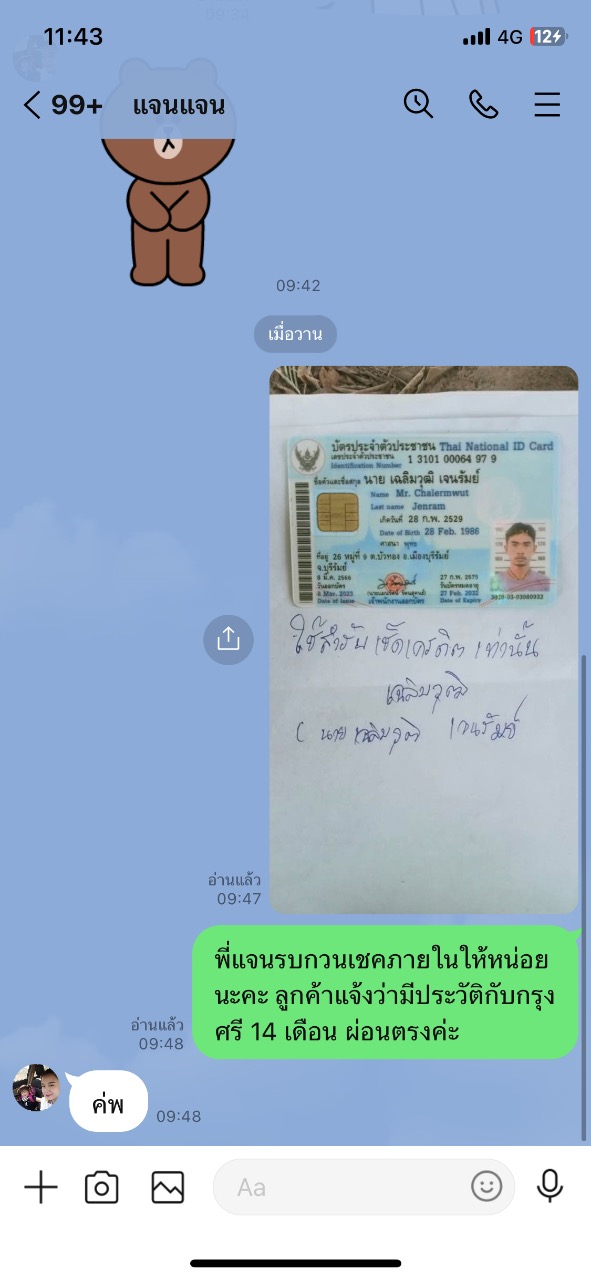 09:34
11:43
4G
12
99+ แจนแจน
09:42
เมื่อวาน
บัตรประจำตัวประชาชน Thai National ID Card
เลขประจำตัวประชาชน 1 3101 00064 97 9
Identification Number
ชื่อตัวและชื่อสกุล นาย เฉลิมวุฒิ เจนรัมย์
Name Mr. Chalermwut
Last name Jenram
เกิดวันที่ 28 ก.พ. 2529
Date of Birth 28 Feb. 1986
ศาสนา พุทธ
ที่อยู่ 26 หมู่ที่ 9 ต.บัวทอง อ.เมืองบุรีรัมย์
จ.บุรีรัมย์
8 มี.ค. 2566
วันออกบัตร
8 Mar. 2023
Date of Issue
เจ้าพนักงานออกบัตร
27 ก.พ. 2575
วันบัตรหมดอายุ
27 Feb. 2032
Date of Expiry
ใช้สำหรับ เช็คเครดิต เท่านั้น
เฉลิมวุฒิ
( นาย เฉลิมวุฒิ เจนรัมย์
อ่านแล้ว
09:47
พี่แจนรบกวนเชคภายในให้หน่อย
นะคะ ลูกค้าแจ้งว่ามีประวัติกับกรุง
ศรี 14 เดือน ผ่อนตรงค่ะ
อ่านแล้ว
09:48
ค่พ
09:48
Aa